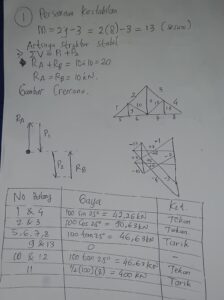 1 Persamaan Kestabilan
m = 2j - 3 = 2(8) - 3 = 13 (sesuai)
Artinya Struktur Stabil
ΣV = P₁ + P₂
RA + RB = 10 + 10 = 20
RA = RB = 10 kN.
Gambar Cremona.
RA
P₁
P₂
RB
No Batang Gaya Ket
1 & 4 100 sin 25° = 42,26 kN Tekan
2 & 3 100 cos 25° = 90,63 kN Tekan
5, 6, 7, 8 100 tan 25° = 46,63 kN Tarik
9 & 13 0 -
10 & 12 100 tan 25° = 46,63 kN Tekan
11 = 400 kN Tarik